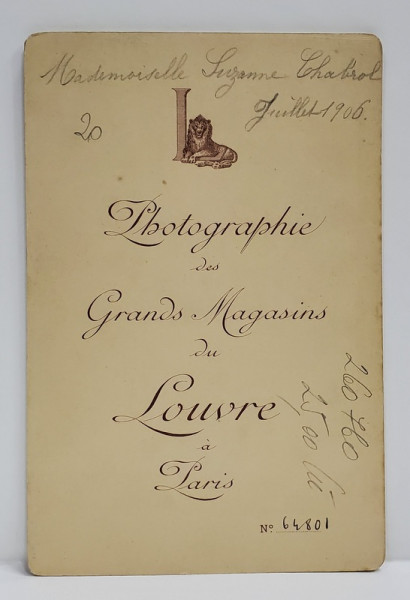 Mademoiselle Suzanne Chabrol
Juillet 1906.
20
L
Photographie
des
Grands Magasins
du
Louvre
à
Paris
260 × 160
25 00
No 64801